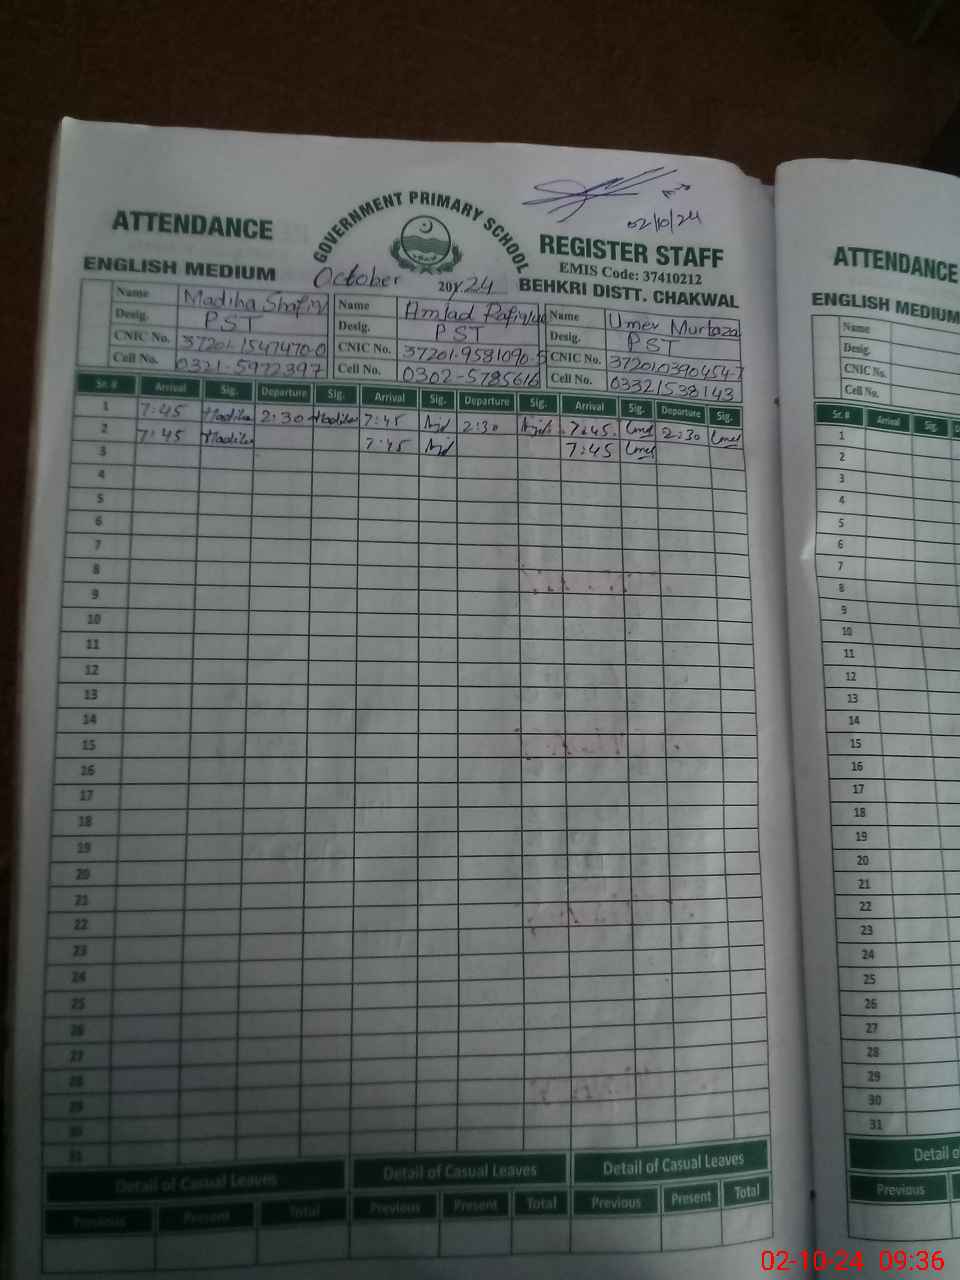 02/10/24
ATTENDANCE GOVERNMENT PRIMARY SCHOOL REGISTER STAFF
EMIS Code: 37410212
ENGLISH MEDIUM October 2024 BEHKRI DISTT. CHAKWAL
Name Madiha Shafiq Name Amjad Rafique Name Umer Murtaza
Desig. PST Desig. PST Desig. PST
CNIC No. 37201-1547470-0 CNIC No. 37201-9581090-5 CNIC No. 372010390454-7
Cell No. 0321-5972397 Cell No. 0302-5785616 Cell No. 03321538143
Sr. # Arrival Sig. Departure Sig. Arrival Sig. Departure Sig. Arrival Sig. Departure Sig.
1 7:45 Madiha 2:30 Madiha 7:45 2:30 7:45 2:30
2 7:45 Madiha 7:45 7:45
3
4
5
6
7
8
9
10
11
12
13
14
15
16
17
18
19
20
21
22
23
24
25
26
27
28
29
30
31
Detail of Casual Leaves Detail of Casual Leaves Detail of Casual Leaves
Previous Present Total Previous Present Total Previous Present Total
ATTENDANCE
ENGLISH MEDIUM
Name
Desig.
CNIC No.
Cell No.
Sr. # Arrival Sig.
1
2
3
4
5
6
7
8
9
10
11
12
13
14
15
16
17
18
19
20
21
22
23
24
25
26
27
28
29
30
31
Detail
Previous
02-10-24 09:36